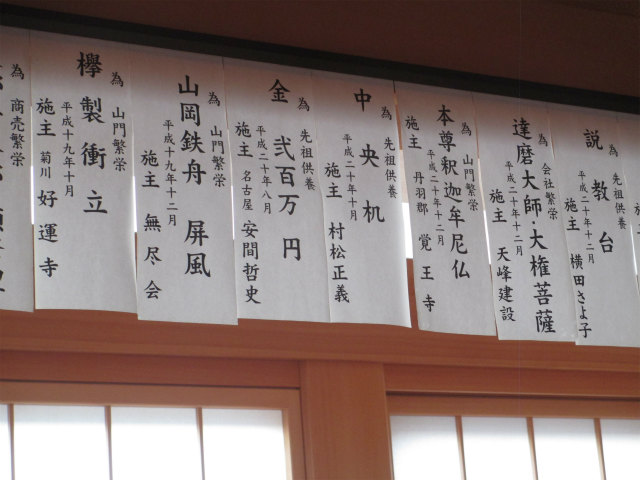 為 先祖供養
説教台
平成二十年十二月
施主 横田さよ子
為 会社繁栄
達磨大師・大権菩薩
平成二十年十二月
施主 天峰建設
為 山門繁栄
本尊釈迦牟尼仏
平成二十年十二月
施主 丹羽郡 覚王寺
為 先祖供養
中央机
平成二十年十月
施主 村松正義
為 先祖供養
金 弐百万円
平成二十年八月
施主 名古屋 安間哲史
為 山門繁栄
山岡鉄舟 屏風
平成十九年十二月
施主 無尽会
為 山門繁栄
欅製衝立
平成十九年十月
施主 菊川 好運寺
為 商売繁栄